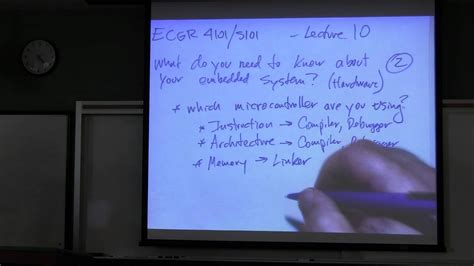 ECGR 4101/5101 - Lecture 10
What do you need to know about
your embedded system? (Hardware) 2
* which microcontroller are you using?
* Instruction → Compiler, Debugger
* Architecture → Compiler, Debugger
* Memory → Linker